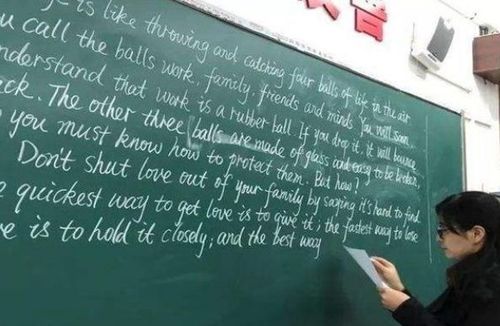 e is like throwing and catching four balls of life in the air
u call the balls work, family, friends and minds You will soon
nderstand that work is a rubber ball If you drop it, it will bounce
ack. The other three balls are made of glass and easy to be broken,
you must know how to protect them. But how?
Don't shut love out of your family by saying it's hard to find.
e quickest way to get love is to give it; the fastest way to lose
e is to hold it closely; and the best way